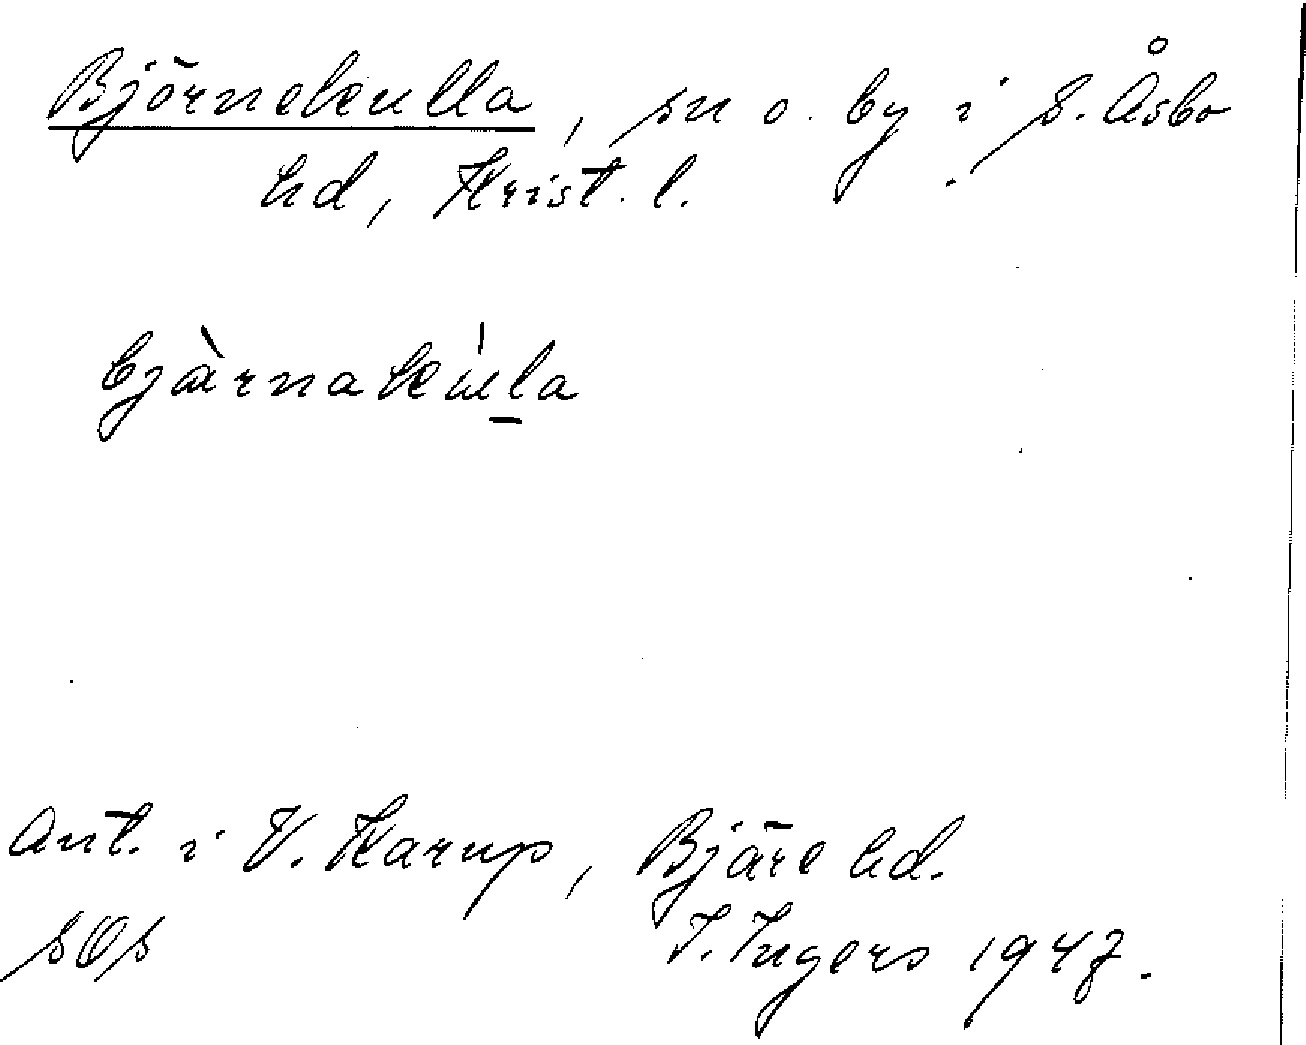 Björnekulla, sn o. by i S. Åsbo
hd, Krist. l.
bjàrnakúla
Ant. i V. Karup, Bjäre hd.
SOS I. Ingers 1947.